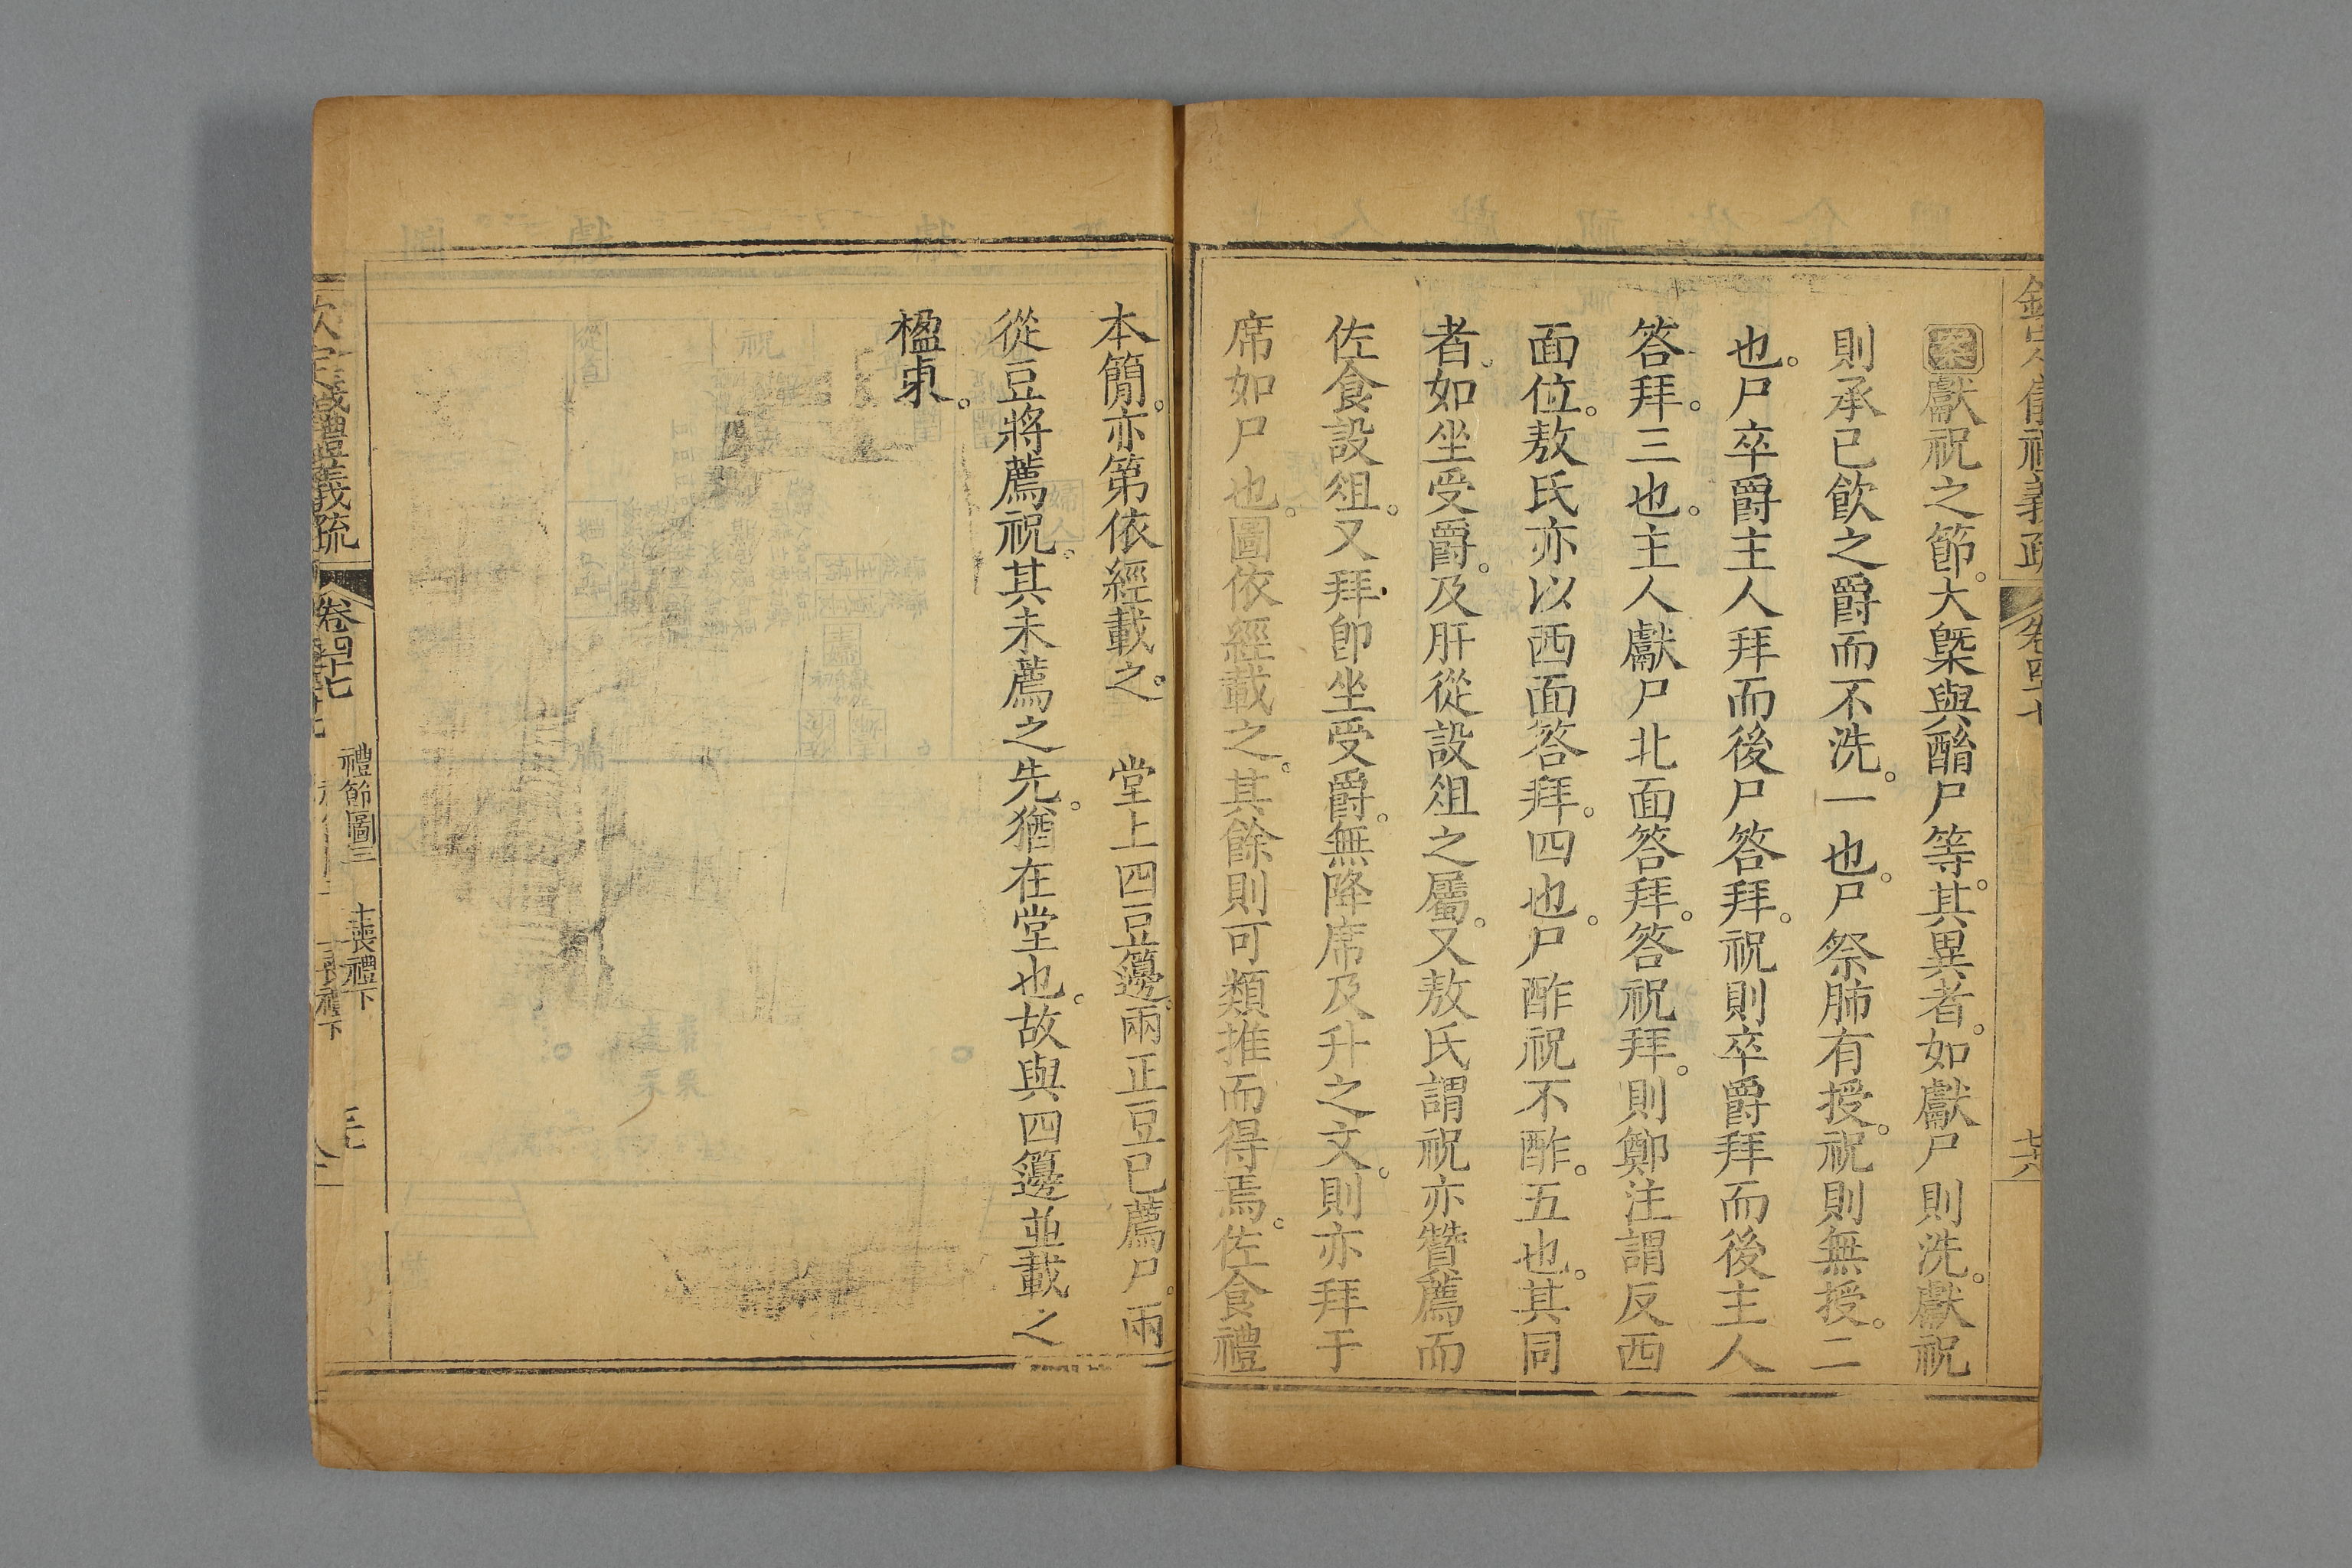 案獻祝之節。大槩與酳尸等。其異者。如獻尸則洗。獻祝
則承已飲之爵而不洗。一也。尸祭肺有授。祝則無授。二
也。尸卒爵主人拜而後尸答拜。祝則卒爵拜而後主人
答拜。三也。主人獻尸北面答拜。答祝拜。則鄭注謂反西
面位。敖氏亦以西面答拜。四也。尸酢祝不酢。五也。其同
者。如坐受爵。及肝從設俎之屬。又敖氏謂祝亦贊薦而
佐食設俎。又拜卽坐受爵。無降席及升之文。則亦拜于
席如尸也。圖依經載之。其餘則可類推而得焉。佐食禮
本簡。亦第依經載之。　堂上四豆籩。兩正豆已薦尸。兩
從豆將薦祝。其未薦之先。猶在堂也。故與四籩並載之
楹東。
欽定儀禮義疏
卷四十七
禮節圖三
士喪禮下